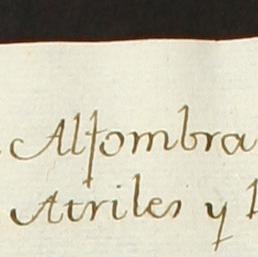 Alfombra
Atriles y